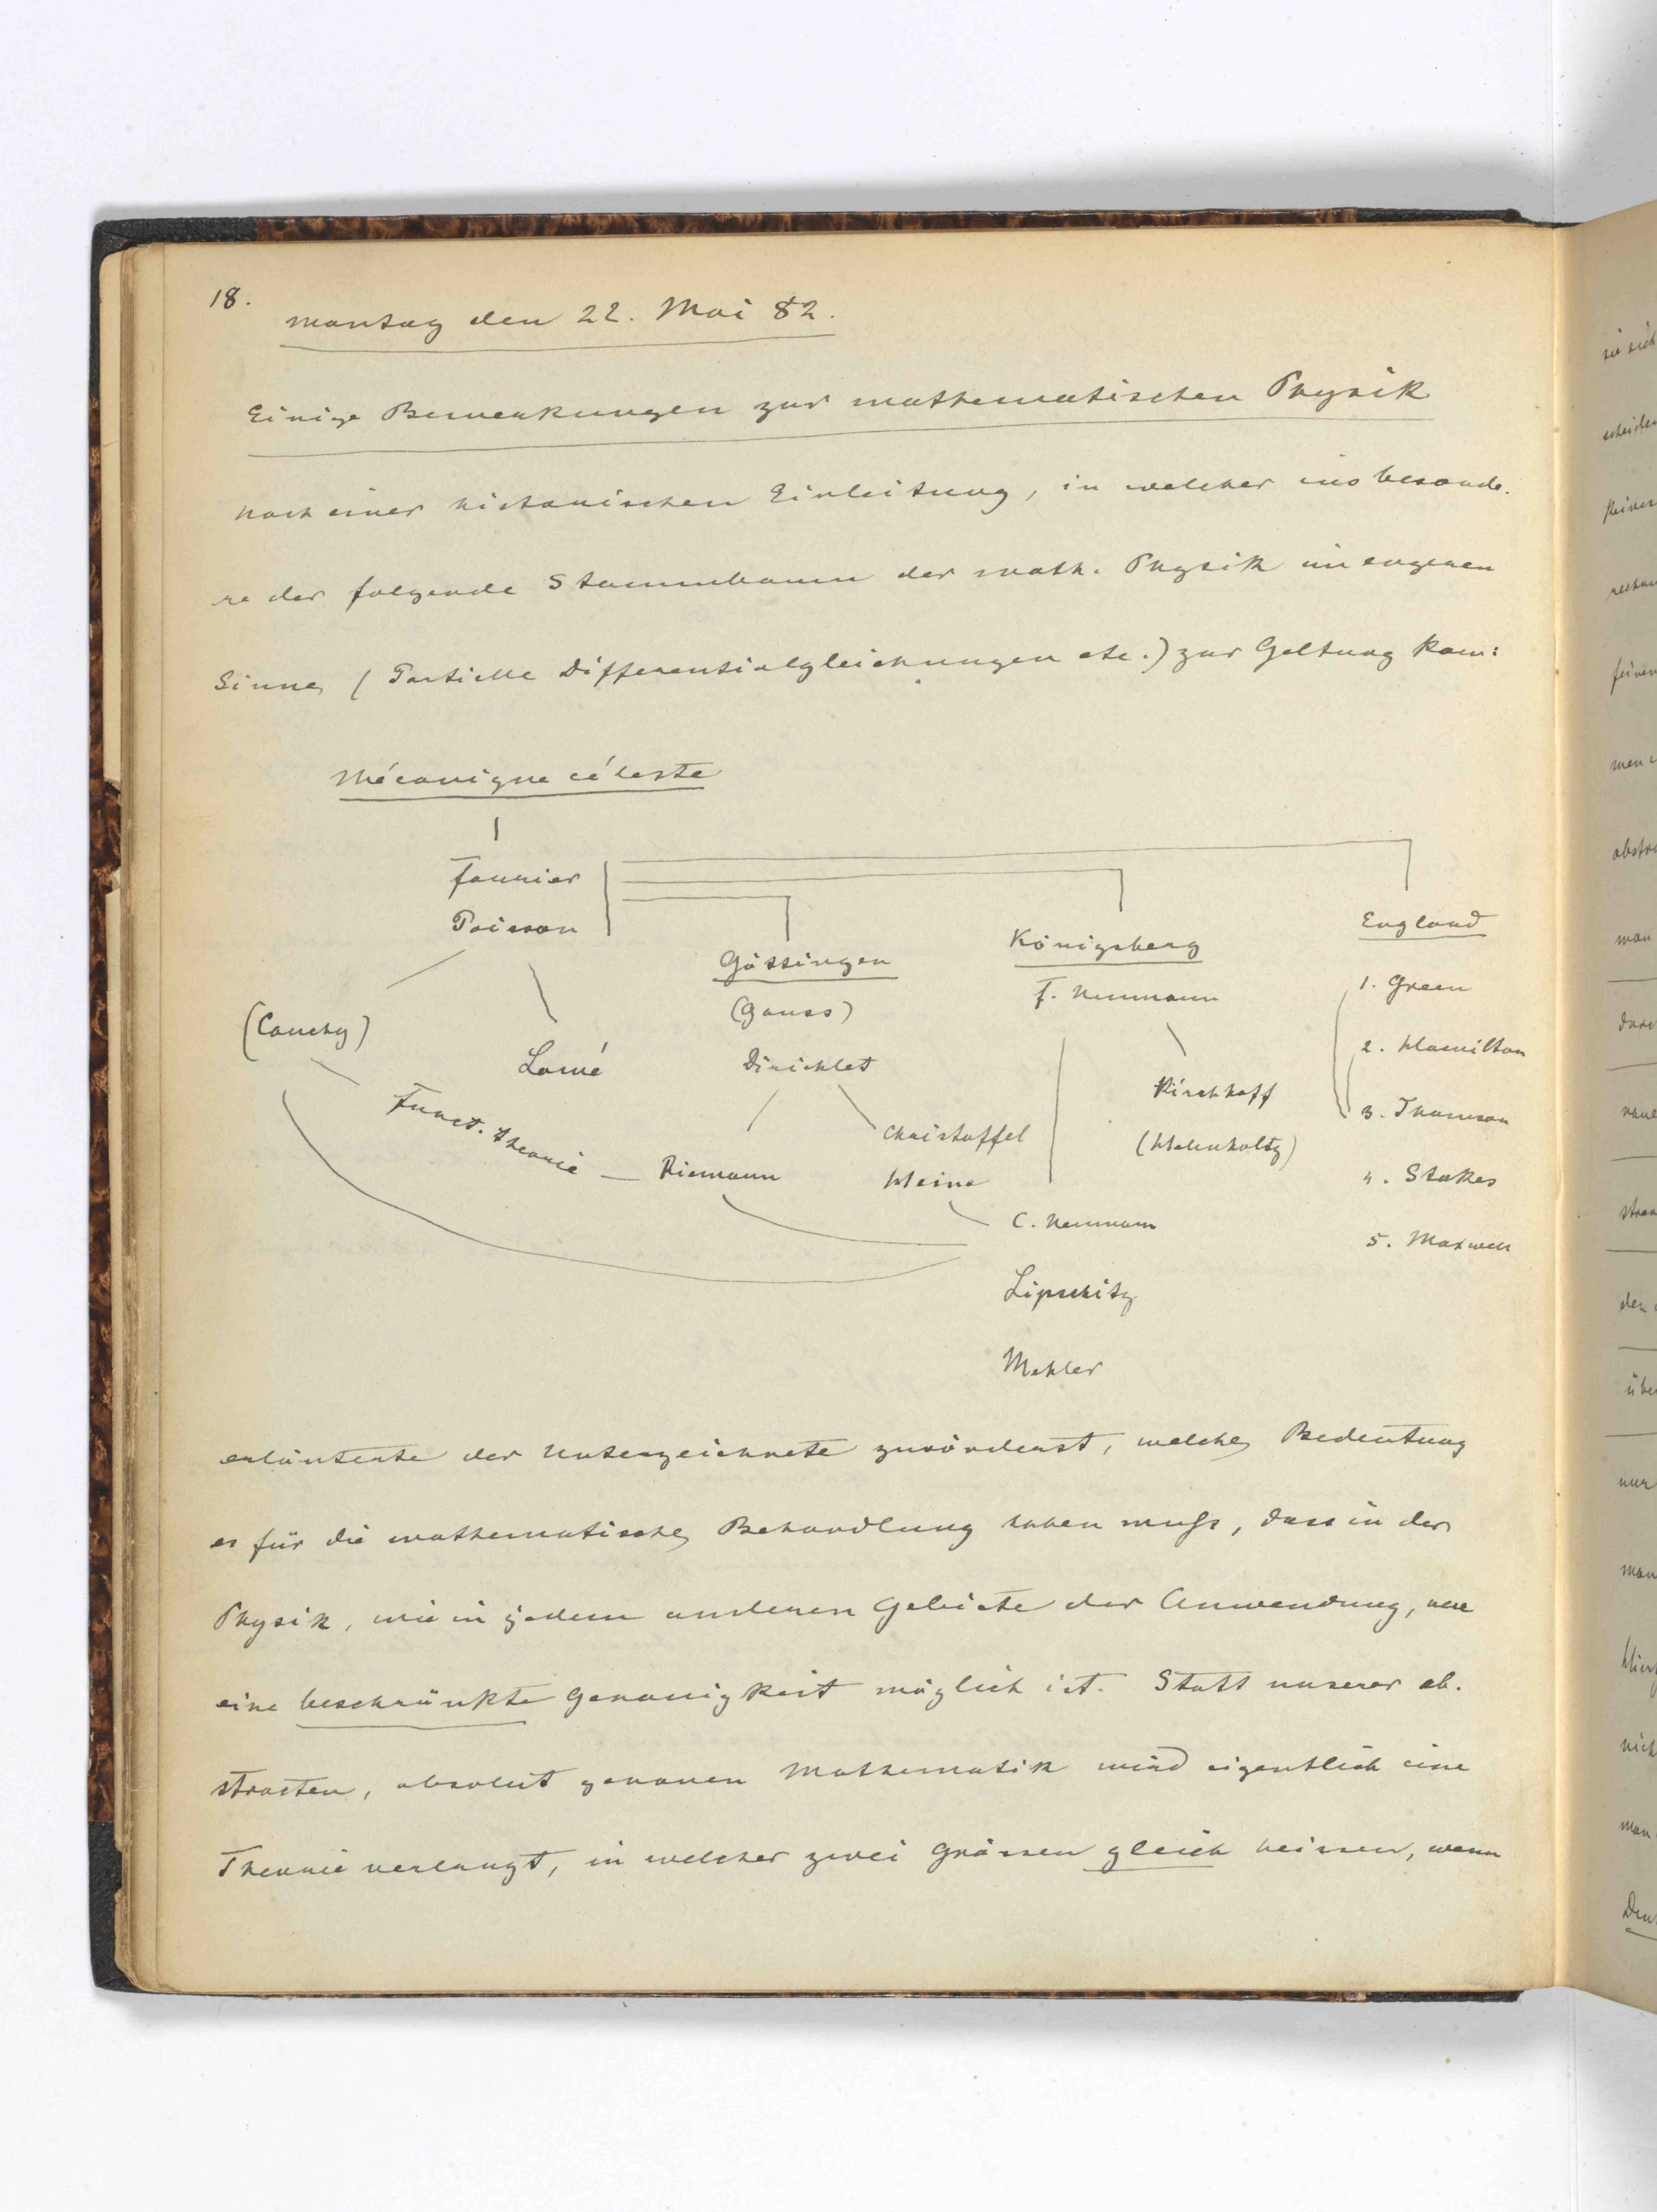 18.
Montag den 22. Mai 82.
Einige Bemerkungen zur mathematischen Physik
Nach einer historischen Einleitung, in welcher insbesonde-
re der folgende Stammbaum der math. Physik im engeren
Sinne (Partielle Differentialgleichungen etc.) zur Geltung kam:
Mécanique céleste
Fourier
Poisson
England
Göttingen
Königsberg
(Gauss)
F. Neumann
1. Green
(Cauchy)
Lamé
Dirichlet
2. Hamilton
Kirchhoff
3. Thomson
Funct. theorie
Christoffel
(Helmholtz)
Riemann
Heine
4. Stokes
C. Neumann
5. Maxwell
Lipschitz
Mehler
erläuterte der Unterzeichnete zuvörderst, welche Bedeutung
es für die mathematische Behandlung haben muß, dass in der
Physik, wie in jedem anderen Gebiete der Anwendung, nur
eine beschränkte Genauigkeit möglich ist. Statt unserer ab-
stracten, absolut genauen Mathematik wird eigentlich eine
Theorie verlangt, in welcher zwei Grössen gleich heissen, wenn